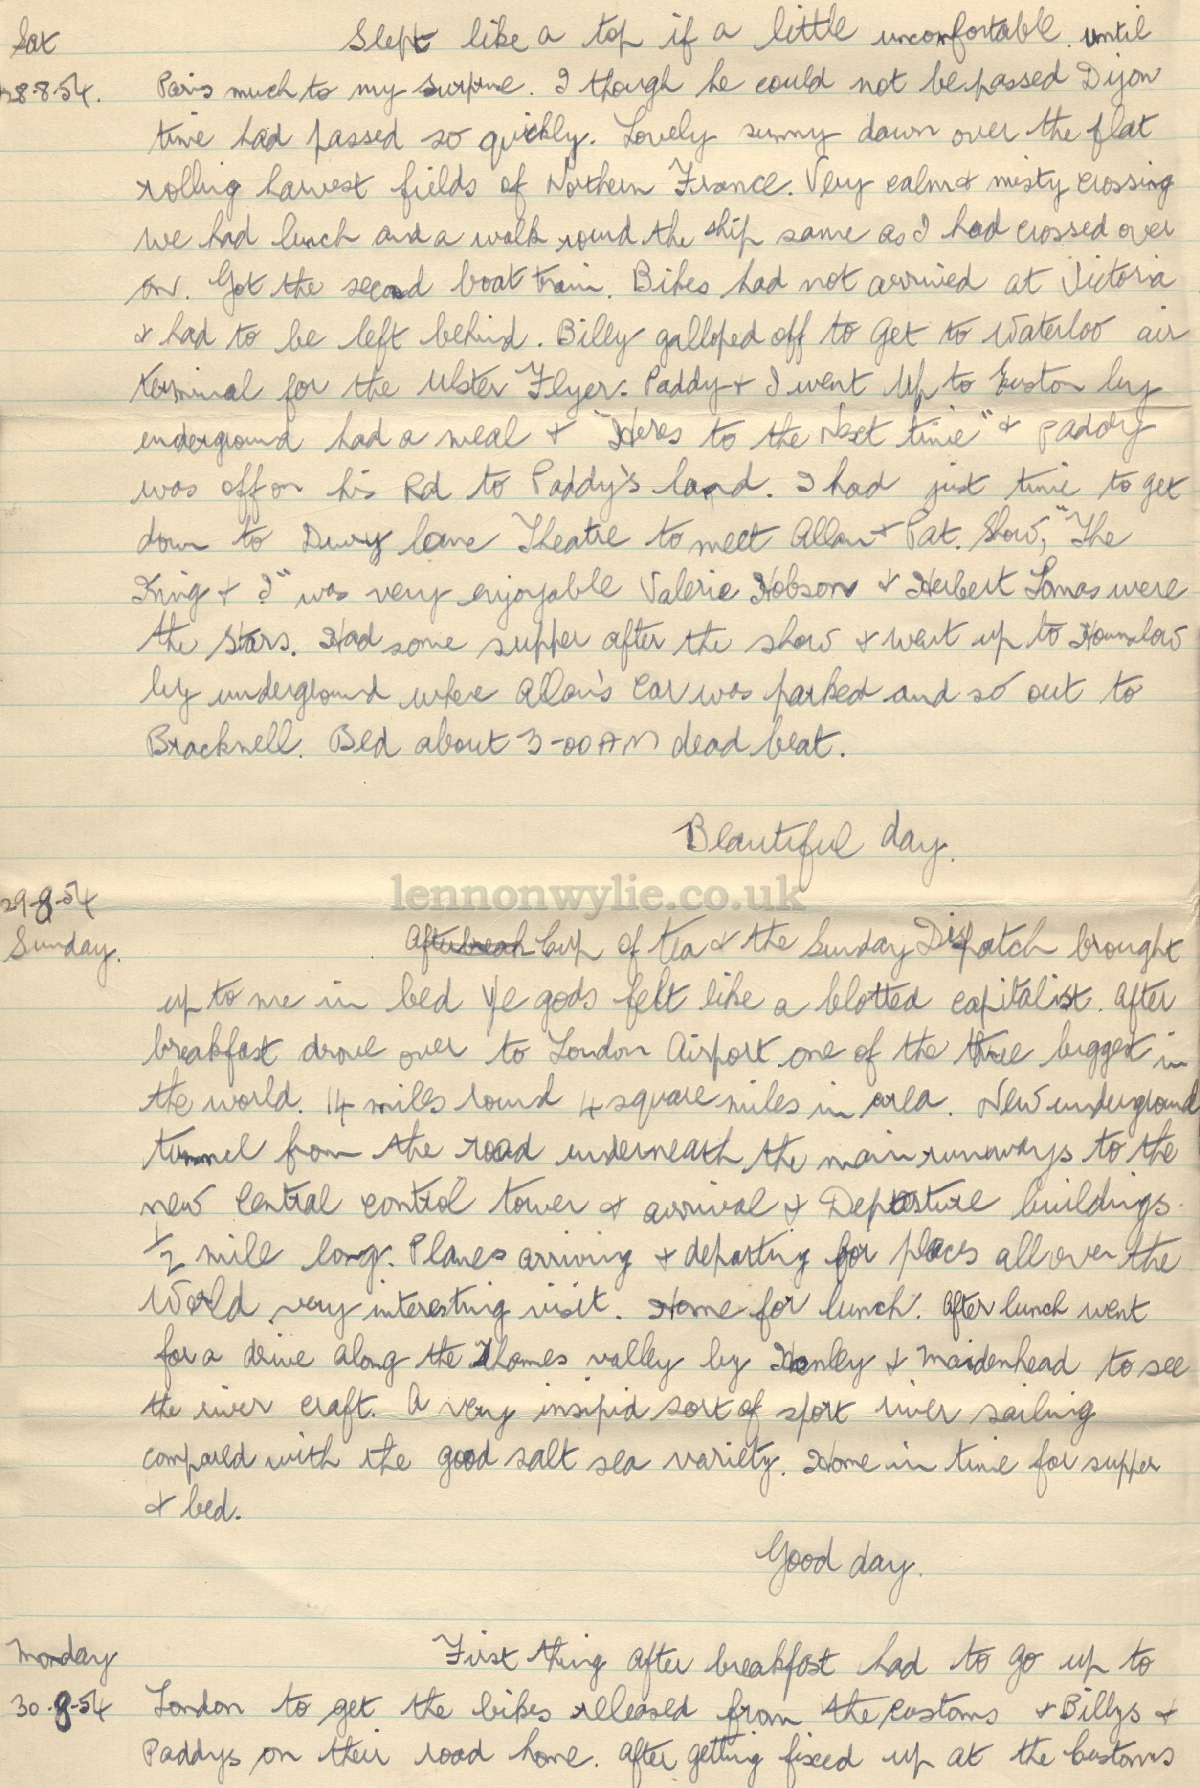 Sat
28-8-54.
Slept like a top if a little uncomfortable until
Paris much to my surprise. I though he could not be passed Dijon
time had passed so quickly. Lovely sunny dawn over the flat
rolling harvest fields of Northern France. Very calm & misty crossing
we had lunch and a walk round the ship same as I had crossed over
on. Got the second boat train. Bikes had not arrived at Victoria
& had to be left behind. Billy galloped off to get to Waterloo air
terminal for the Ulster Flyer. Paddy & I went up to Euston by
underground had a meal & "Heres to the Next time" & Paddy
was off on his Rd to Paddy's land. I had just time to get
down to Drury lane Theatre to meet Allan & Pat. Show, "The
King & I" was very enjoyable Valerie Hobson & Herbert Lomas were
the stars. Had some supper after the show & went up to Hounslow
by underground where Allan's car was parked and so out to
Bracknell. Bed about 3-00AM dead beat.
Beautiful day.
lennonwylie.co.uk
29-8-54
Sunday.
Afterbreak Cup of tea & the Sunday Dispatch brought
up to me in bed Ye gods felt like a blotted capitalist. After
breakfast drove over to London Airport one of the three biggest in
the world. 14 miles round 4 square miles in area. New underground
tunnel from the road underneath the main runways to the
new central control tower & arrival & Departure buildings.
1/2 mile long. Planes arriving & departing for places all over the
World very interesting visit. Home for lunch. After lunch went
for a drive along the Thames valley by Henley & Maidenhead to see
the river craft. A very insipid sort of sport river sailing
compared with the good salt sea variety. Home in time for supper
& bed.
Good day.
Monday
30-8-54
First thing after breakfast had to go up to
London to get the bikes released from the customs & Billys &
Paddys on their road home. After getting fixed up at the Customs